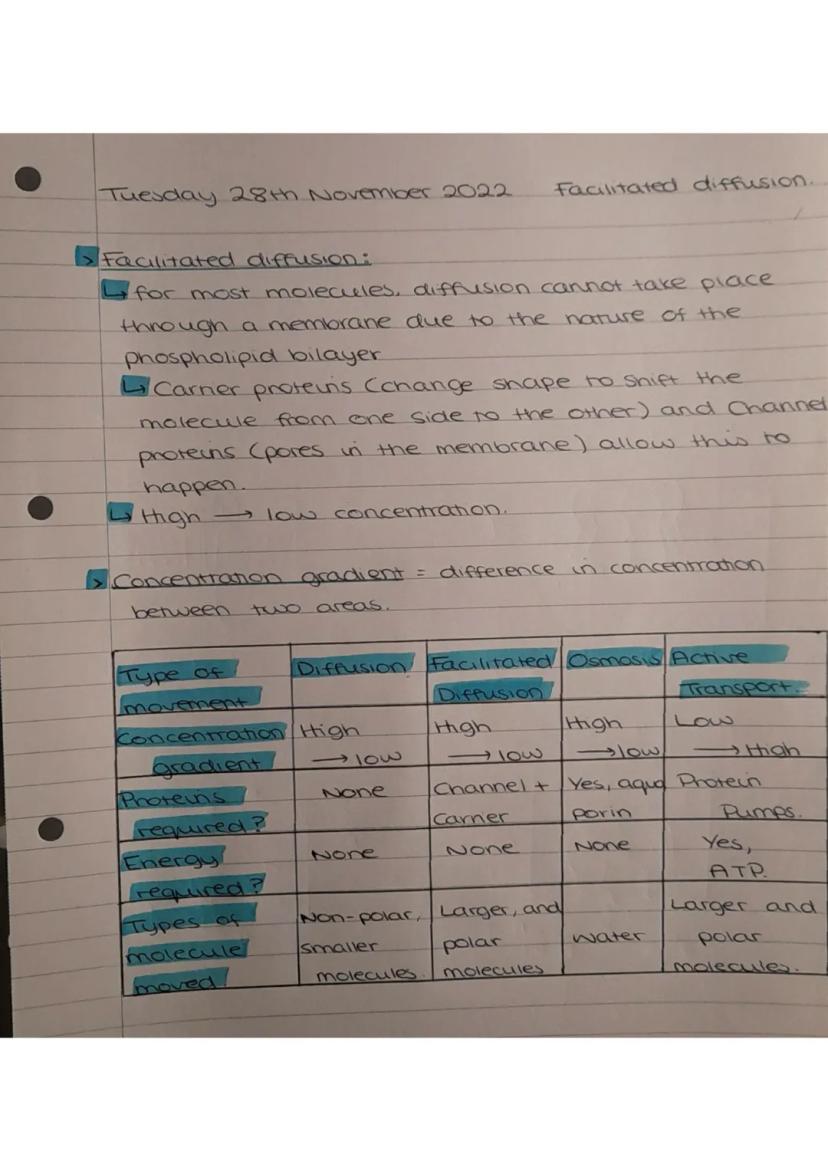 Tuesday 28th November 2022 Facilitated diffusion.
> Facilitated diffusion:
↳ for most molecules, diffusion cannot take place
through a membrane due to the nature of the
phospholipid bilayer
↳ Carrier proteins (change shape to shift the
molecule from one side to the other) and Channel
proteins (pores in the membrane) allow this to
happen.
↳ High → low concentration.
> Concentration gradient = difference in concentration
between two areas.
Type of movement | Diffusion | Facilitated Diffusion | Osmosis | Active Transport.
Concentration gradient | High → low | High → low | High → low | Low → High
Proteins required? | None | Channel + Carrier | Yes, aqua porin | Protein Pumps.
Energy required? | None | None | None | Yes, ATP.
Types of molecule moved | Non-polar, smaller molecules. | Larger, and polar molecules | water | Larger and polar molecules.